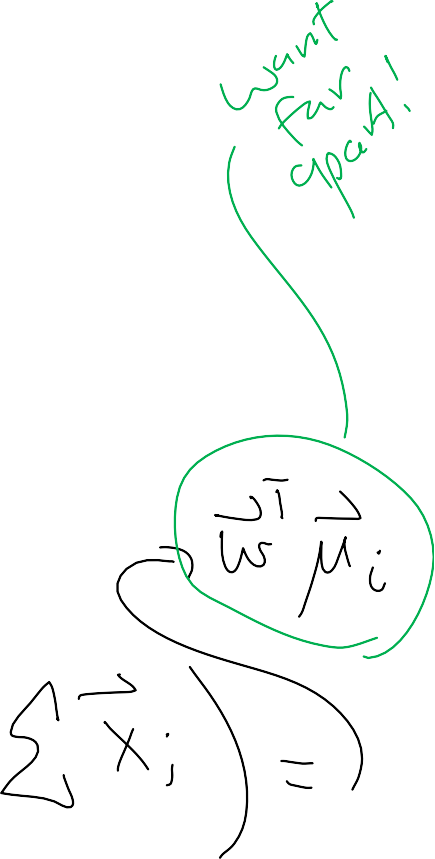 want
far
apart!
w⃗ᵀ μ⃗ᵢ
Σ x⃗ᵢ ) =